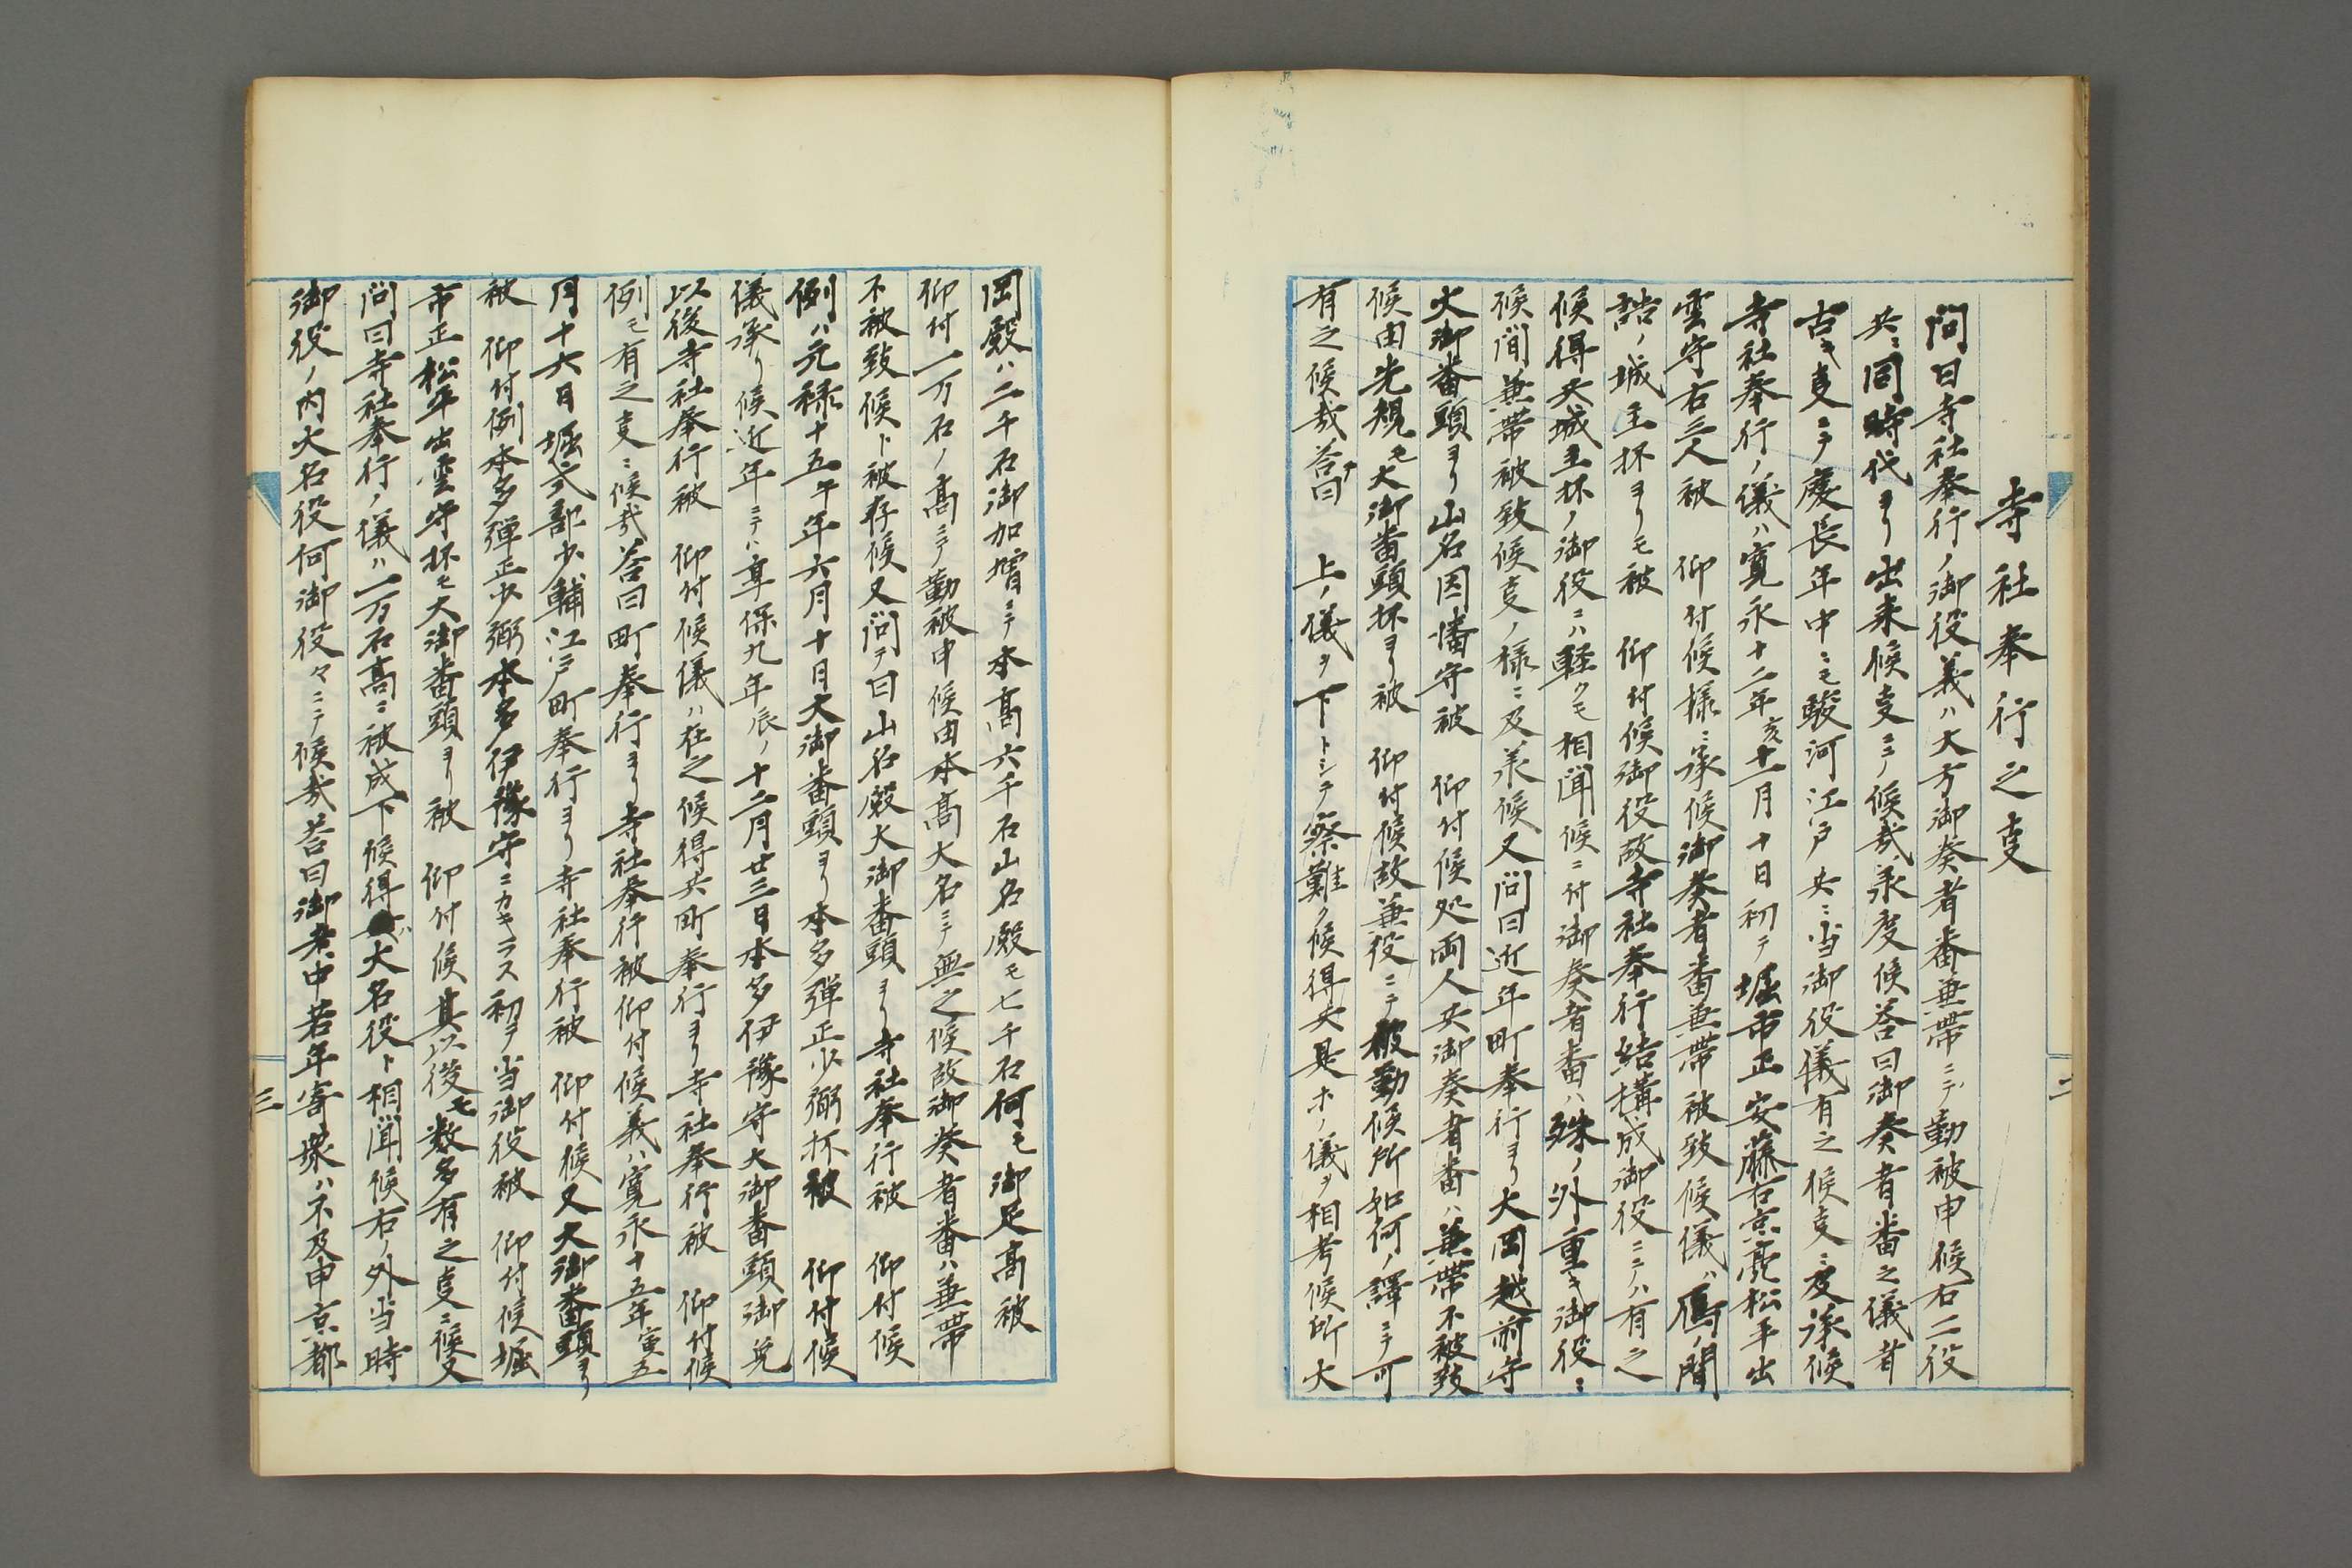 寺社奉行之叓
問曰寺社奉行ノ御役義ハ大方御奏者番兼帯ニテ勤被申候右二役
共ニ同時代ヨリ出来候叓ニテ候哉承度候答曰御奏者番之儀者
古キ叓ニテ慶長年中ニモ駿河江戸共ニ当御役儀有之候叓ニ及承候
寺社奉行ノ儀ハ寛永十二年亥十一月十日初テ堀市正安藤右京亮松平出
雲守右三人被　仰付候様ニ承候御奏者番兼帯被致候儀ハ鴈ノ間
詰ノ城主抔ヨリモ被　仰付候御役故寺社奉行結構成御役ニテハ有之
候得共城主抔ノ御役ニハ軽クモ相聞候ニ付御奏者番ハ殊ノ外重キ御役ニ
候間兼帯被致候叓ノ様ニ及承候又問曰近年町奉行ヨリ大岡越前守
大御番頭ヨリ山名因幡守被　仰付候処両人共御奏者番ハ兼帯不被致
候由先規モ大御番頭抔ヨリ被　仰付候故兼役ニテ被勤候所如何ノ譯ニテ可
有之候哉答曰　上ノ儀ヲ下トシテ察難ク候得共是ホノ儀ヲ相考候所大
岡殿ハ二千石御加増ニテ本高六千石山名殿モ七千石何モ御足高被
仰付一万石ノ高ニテ勤被申候由本高大名ニテ無之候故御奏者番ハ兼帯
不被致候ト被存候又問テ曰山名殿大御番頭ヨリ寺社奉行被　仰付候
例ハ元禄十五午年六月十日大御番頭ヨリ本多弾正少弼抔被　仰付候
儀承リ候近年ニテハ享保九年辰ノ十二月廿三日本多伊豫守大御番頭御免
以後寺社奉行被　仰付候儀ハ在之候得共町奉行ヨリ寺社奉行被　仰付候
例モ有之叓ニ候哉答曰町奉行ヨリ寺社奉行被仰付候義ハ寛永十五年寅五
月十六日堀式部少輔江戸町奉行ヨリ寺社奉行被　仰付候又大御番頭ヨリ
被　仰付例本多弾正少弼本多伊豫守ニカキラス初テ当御役被　仰付候堀
市正松平出雲守抔モ大御番頭ヨリ被　仰付候其以後モ数多有之叓ニ候又
問曰寺社奉行ノ儀ハ一万石高ニ被成下候得ハ大名役ト相聞候右ノ外当時
御役ノ内大名役何御役々ニテ候哉答曰御老中若年寄衆ハ不及申京都
二
三